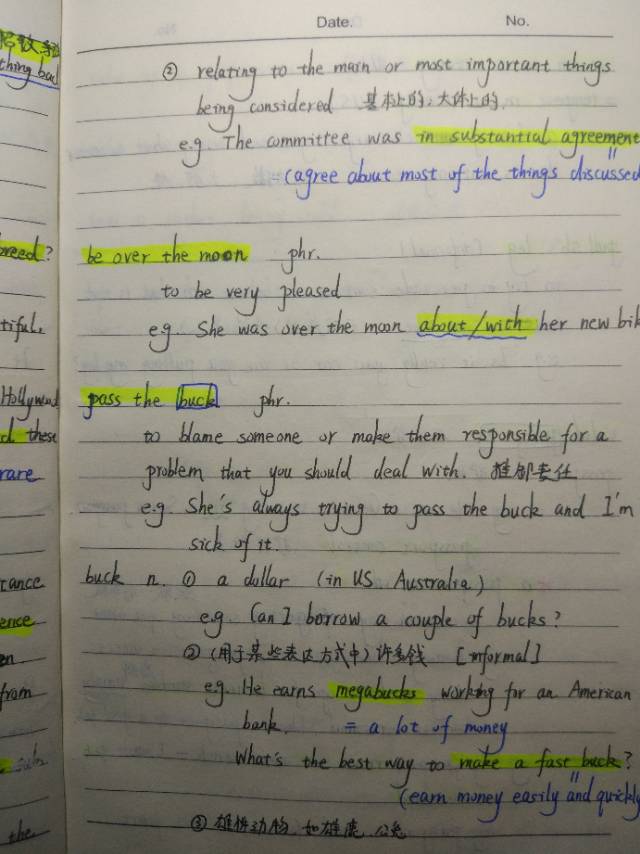 Date. No.
② relating to the main or most important things
being considered 基本上的,大体上的,
e.g The committee was in substantial agreement
=(agree about most of the things discussed
be over the moon phr.
to be very pleased
e.g. She was over the moon about/with her new bik
pass the buck phr.
to blame someone or make them responsible for a
problem that you should deal with. 推卸责任
e.g. She's always trying to pass the buck and I'm
sick of it.
buck n. ① a dollar (in US. Australia)
e.g. Can I borrow a couple of bucks?
② (用于某些表达方式中) 许多钱 [informal]
eg. He earns megabucks working for an American
bank. = a lot of money
What's the best way to make a fast buck?
(earn money easily and quickly
③ 雄性动物, 如雄鹿, 公兔
thing bad
breed?
tiful.
Hollywood
d these
rare
tance
ence
en
from
the